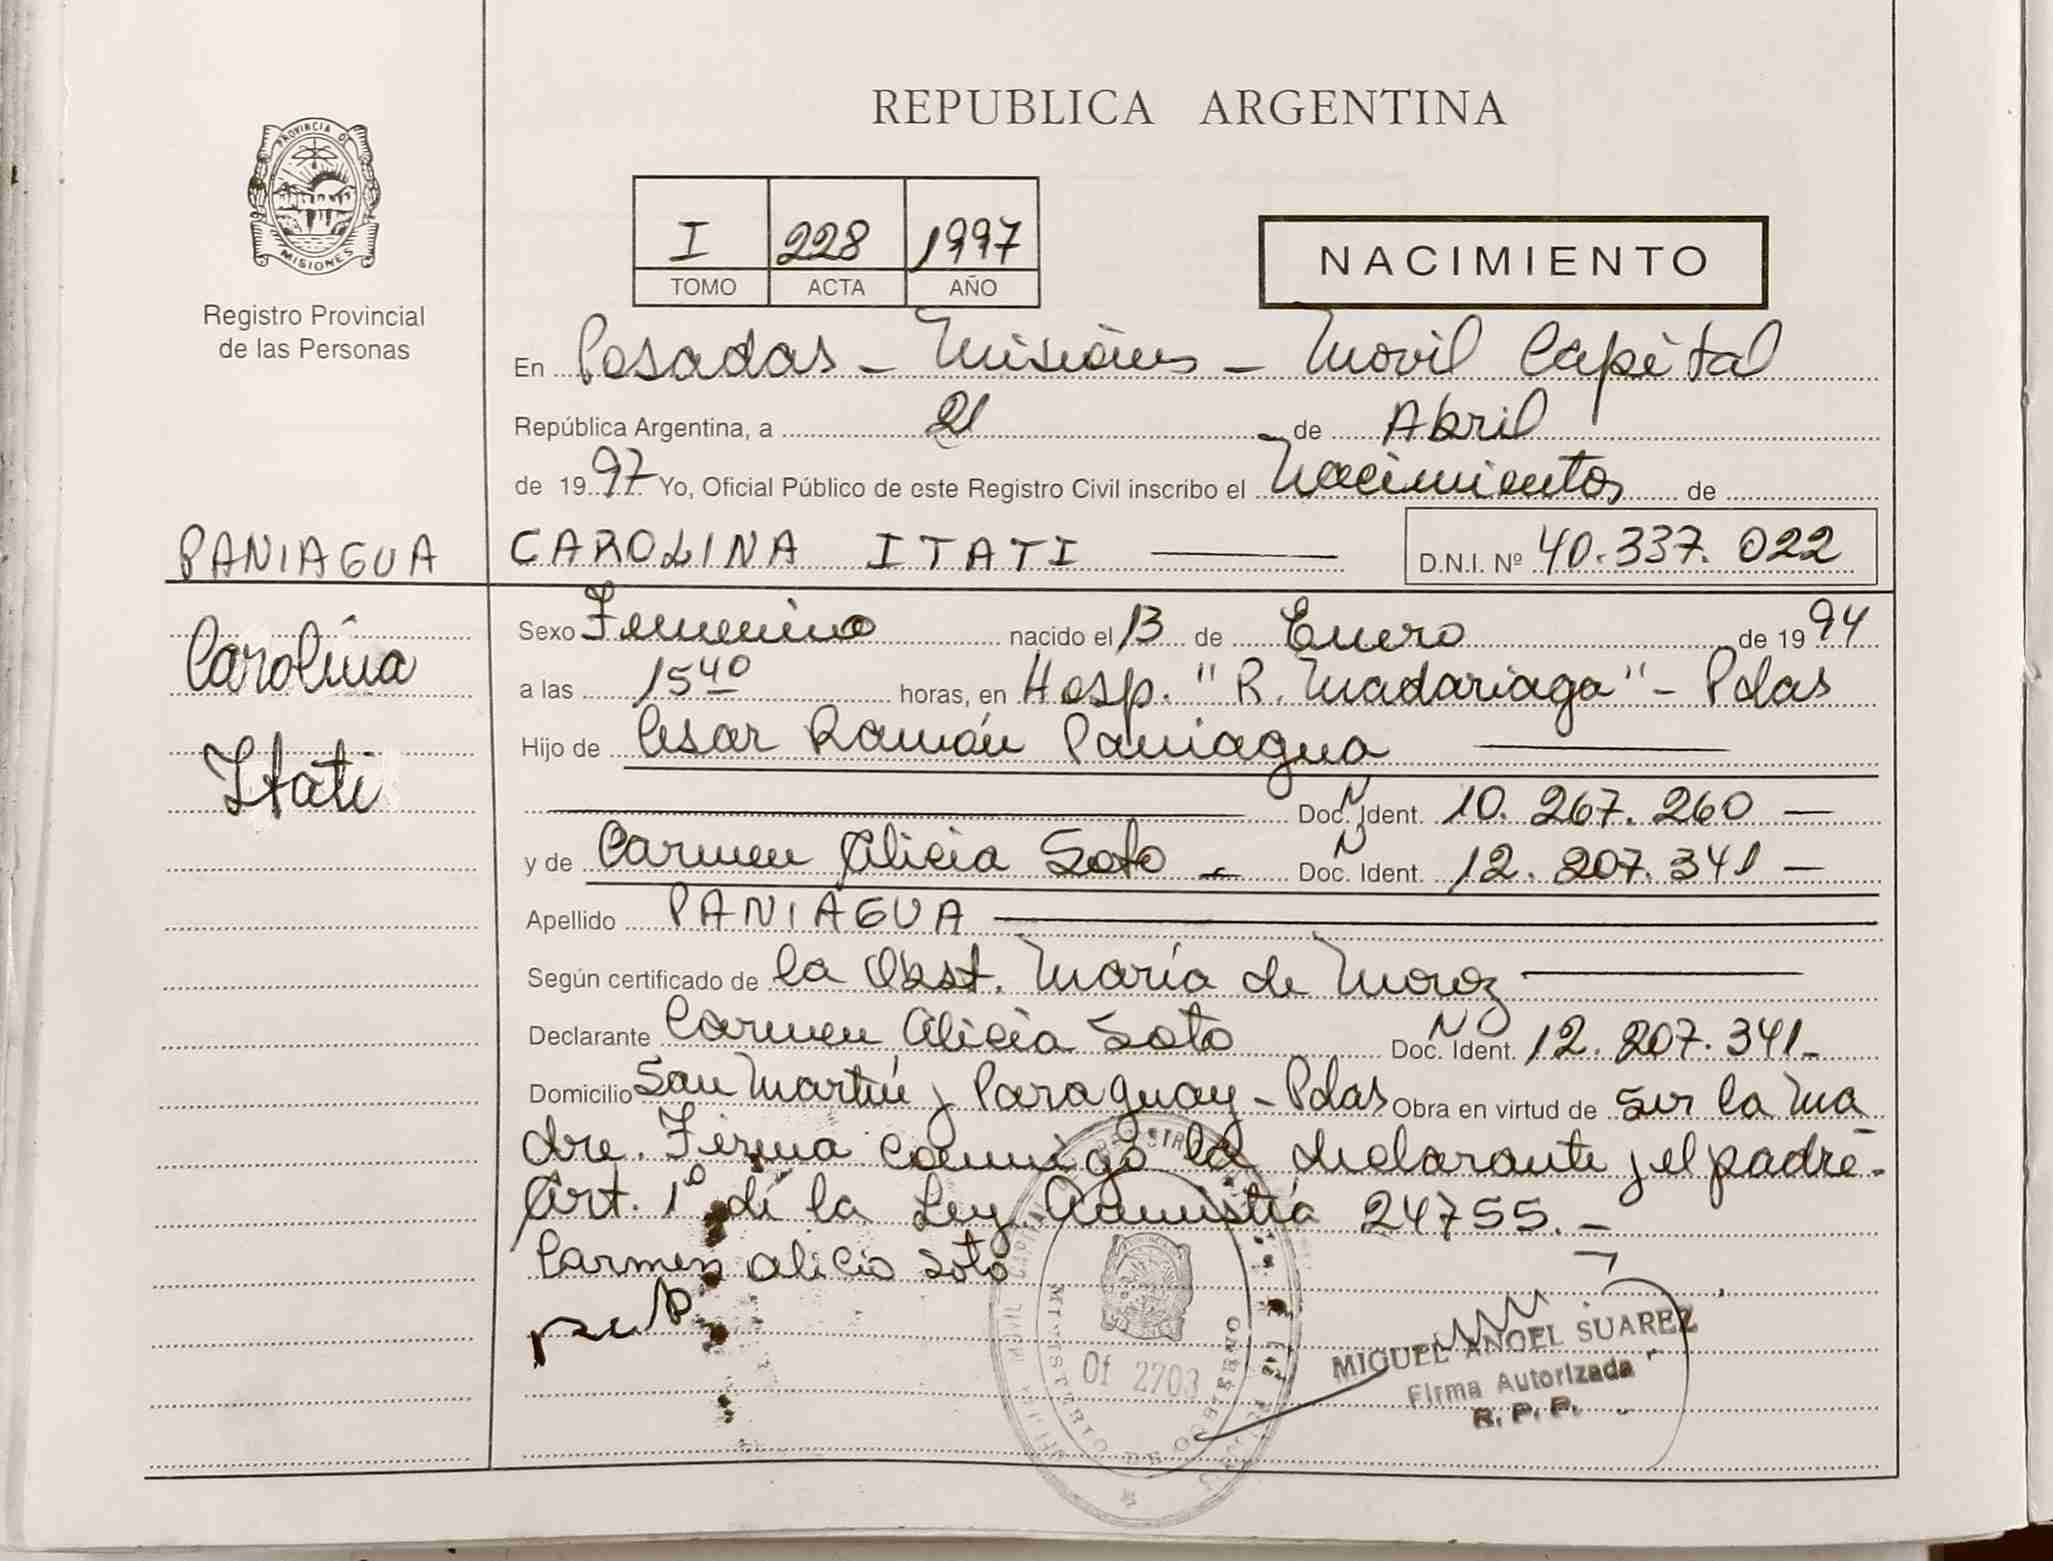 REPUBLICA ARGENTINA
PROVINCIA DE
MISIONES
Registro Provincial
de las Personas
I 228 1997
TOMO ACTA AÑO
NACIMIENTO
En Posadas - Misiones - Movil Capital
República Argentina, a 21 de Abril
de 1997 Yo, Oficial Público de este Registro Civil inscribo el Nacimientos de
PANIAGUA CAROLINA ITATI D.N.I. Nº 40.337.022
Carolina
Itati
Sexo Femenino nacido el 13 de Enero de 1994
a las 15 40 horas, en Hosp. "R. Madariaga" - Pdas
Hijo de Cesar Ramón Paniagua
Doc. Ident. N 10.267.260 -
y de Carmen Alicia Soto - Doc. Ident. N 12.207.341 -
Apellido PANIAGUA
Según certificado de la Obst. María de Moroz
Declarante Carmen Alicia Soto Doc. Ident. N 12.207.341 -
Domicilio San Martín y Paraguay - Pdas Obra en virtud de ser la ma
dre. Firma conmigo la declarante y el padre -
Art. 1º de la Ley Amnistía 24755. -
Carmen alicia soto
Of 2703
MINISTERIO DE GOBIERNO
MIGUEL ANGEL SUAREZ
Firma Autorizada
R. P. P.